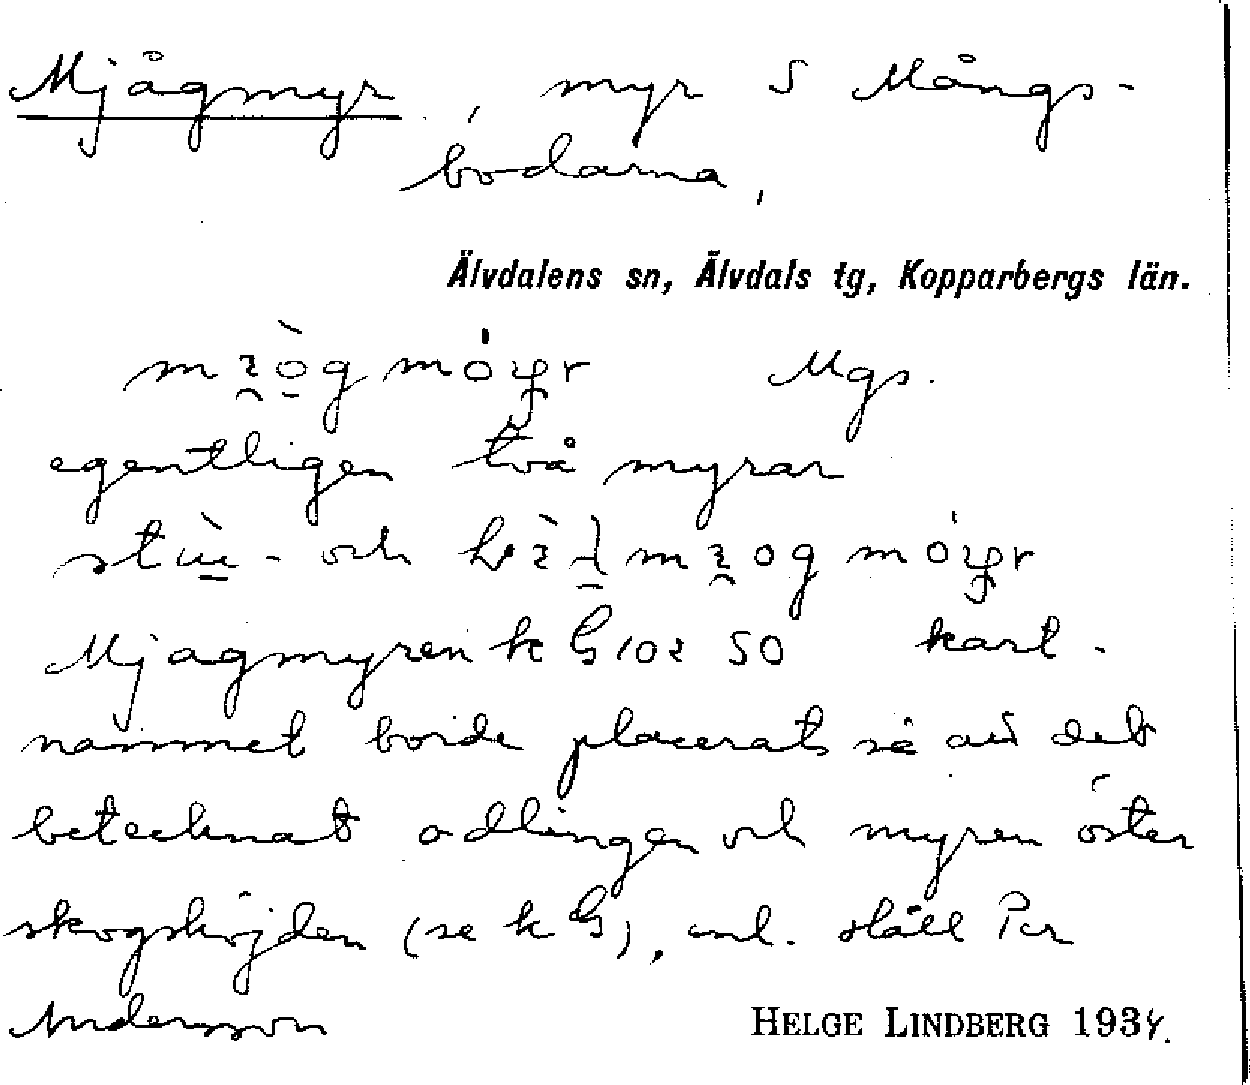 Mjågmyr, myr S Mångs-
bodarna,
Älvdalens sn, Älvdals tg, Kopparbergs län.
Mgs.
egentligen två myrar
och
Mjagmyren k G 102 50 kart-
namnet borde placerats så att det
betecknat odlingen och myren öster
skogshöjden (se k G), enl. ståll Per
Andersson
HELGE LINDBERG 1934.